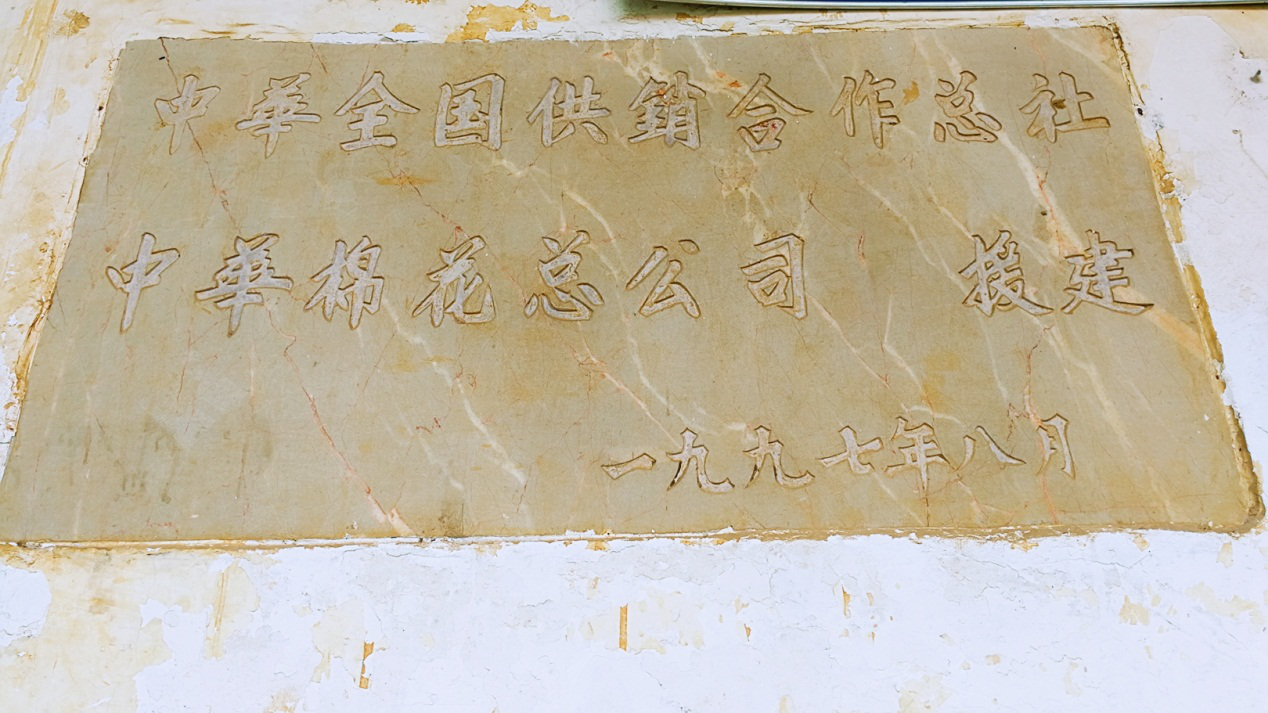 中華全国供銷合作总社
中華棉花总公司 援建
一九九七年八月